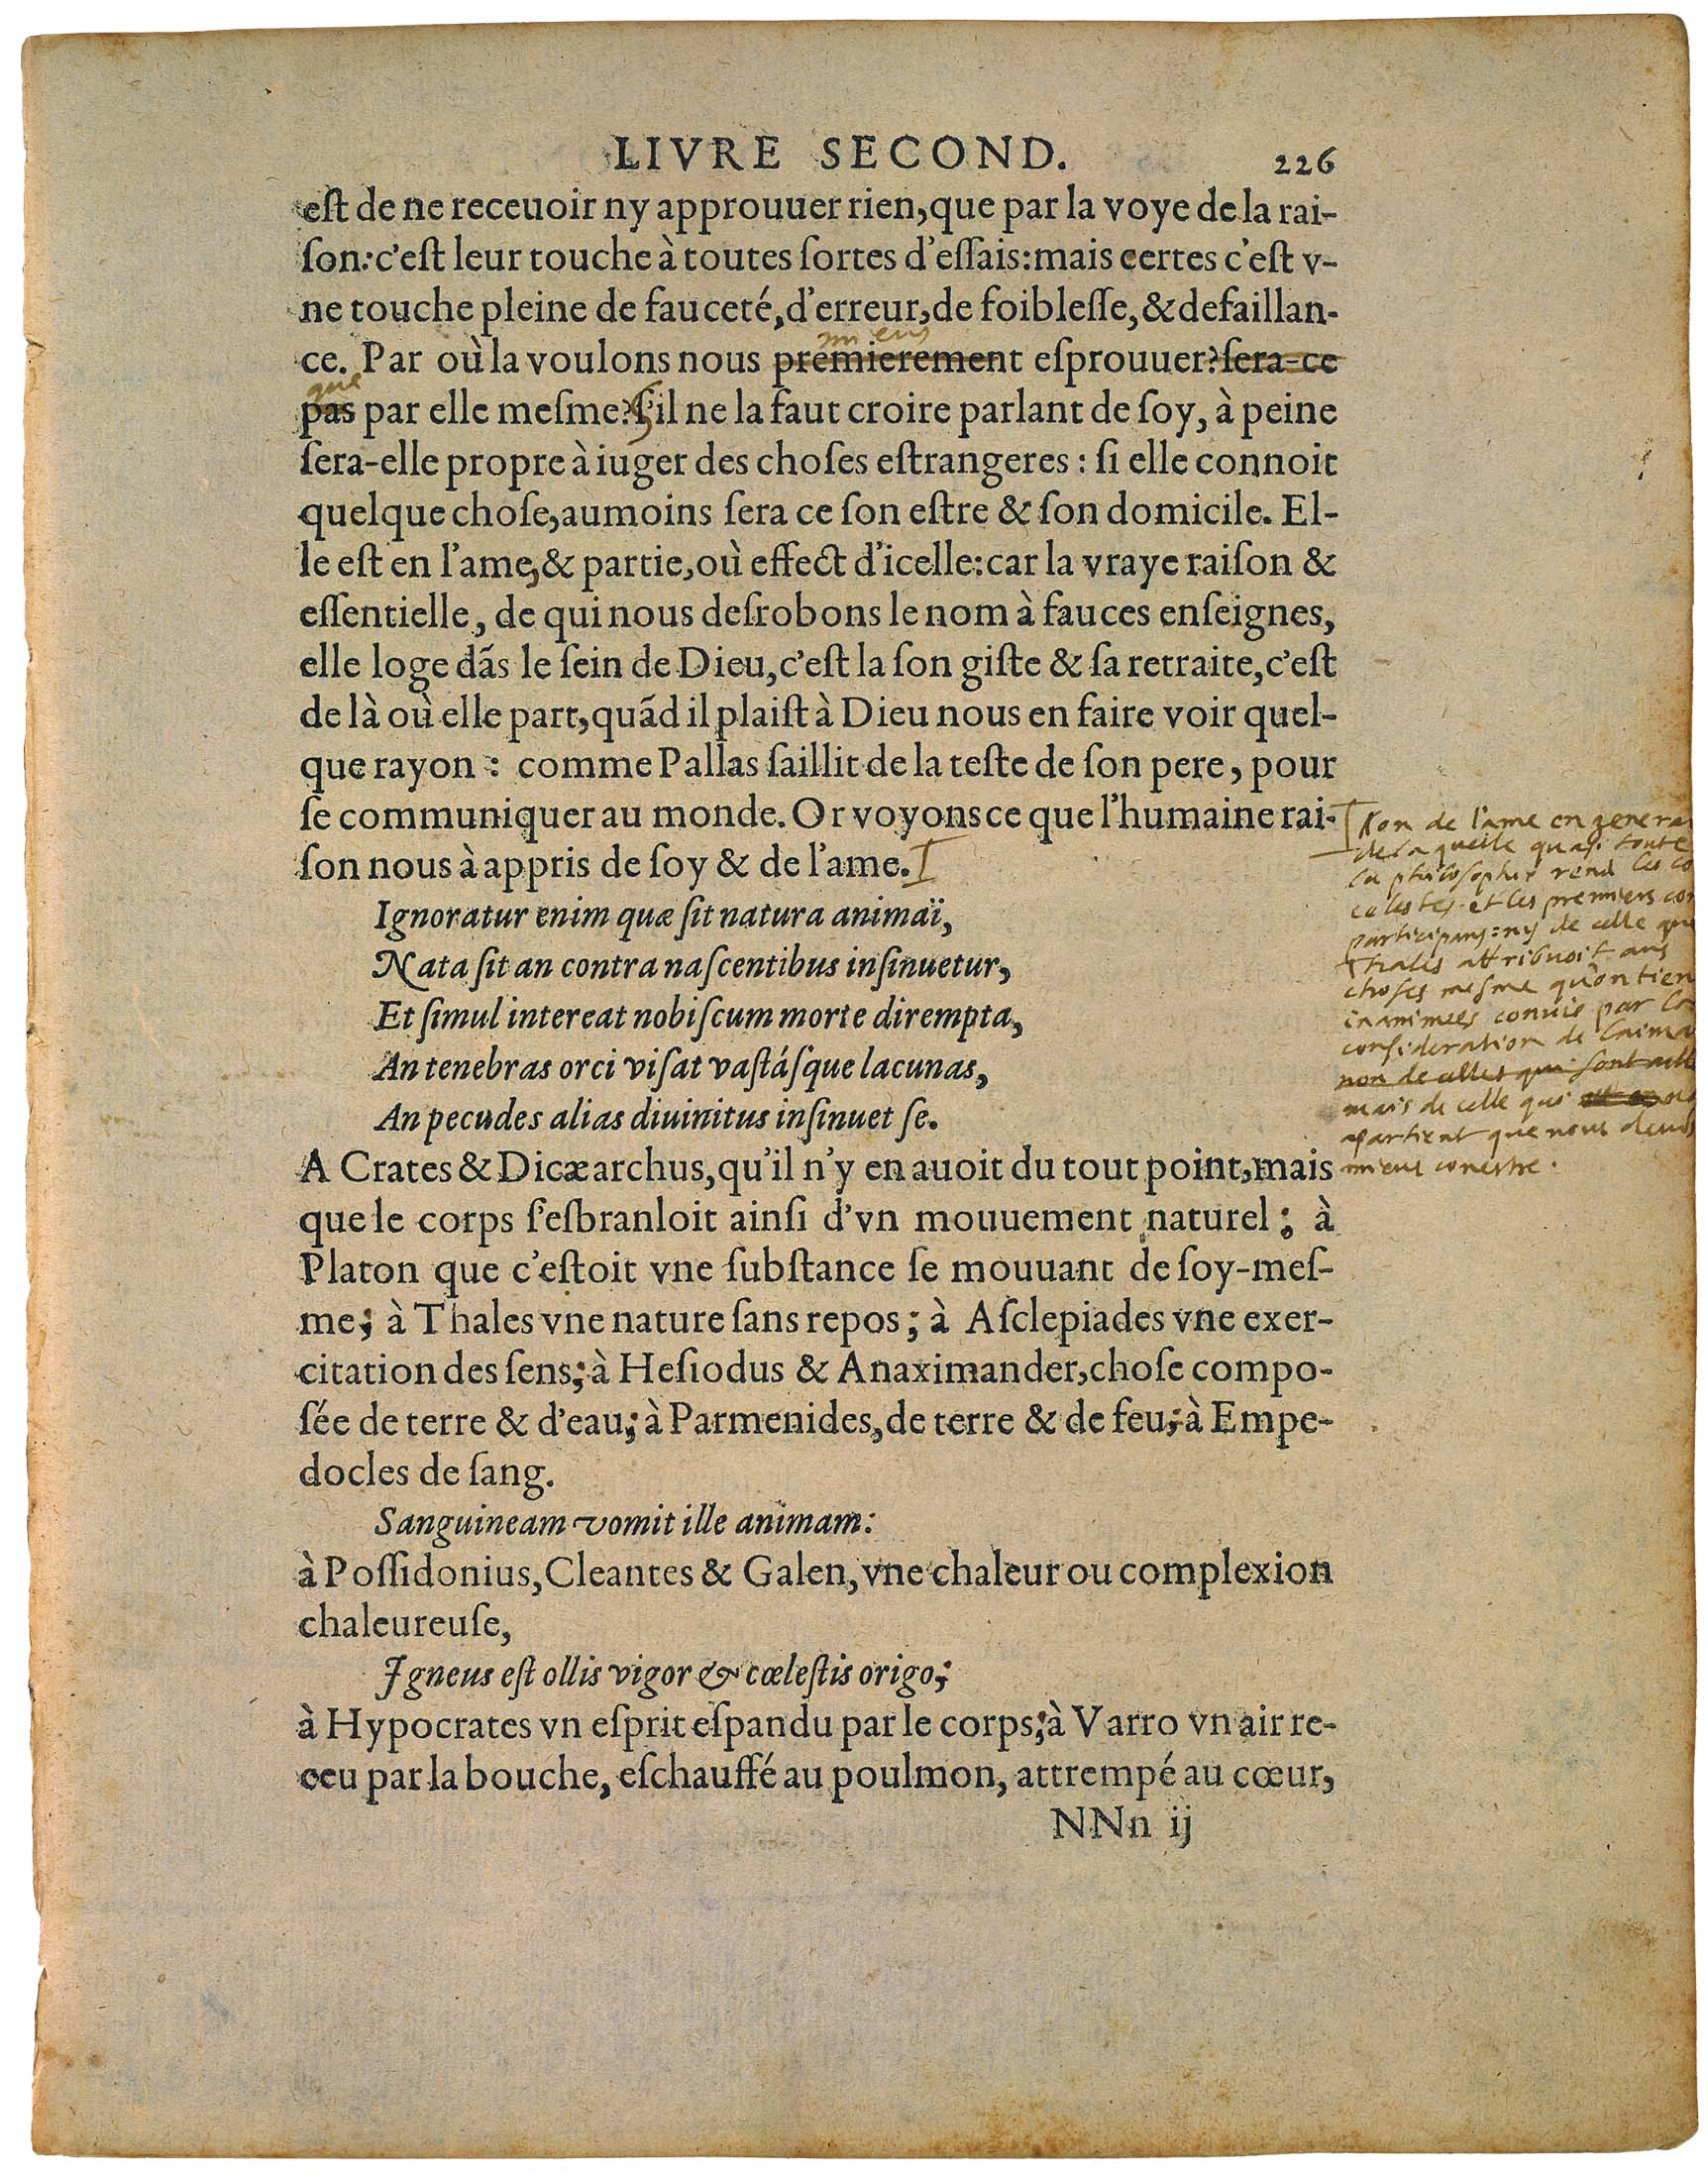 LIVRE SECOND. 226
eſt de ne receuoir ny approuuer rien, que par la voye de la rai-
ſon: c'eſt leur touche à toutes ſortes d'eſſais: mais certes c'eſt v-
ne touche pleine de fauceté, d'erreur, de foibleſſe, & defaillan-
mieus
ce. Par où la voulons nous premierement eſprouuer? ſera-ce
que
pas par elle meſme? S'il ne la faut croire parlant de ſoy, à peine
ſera-elle propre à iuger des choſes eſtrangeres: ſi elle connoit
quelque choſe, aumoins ſera ce ſon eſtre & ſon domicile. El-
le eſt en l'ame, & partie, où effect d'icelle: car la vraye raiſon &
eſſentielle, de qui nous deſrobons le nom à fauces enſeignes,
elle loge dãs le ſein de Dieu, c'eſt la ſon giſte & ſa retraite, c'eſt
de là où elle part, quãd il plaiſt à Dieu nous en faire voir quel-
que rayon: comme Pallas ſaillit de la teſte de ſon pere, pour
ſe communiquer au monde. Or voyons ce que l'humaine rai-
ſon nous à appris de ſoy & de l'ame.
Ignoratur enim quæ ſit natura animaï,
Nata ſit an contra naſcentibus inſinuetur,
Et ſimul intereat nobiſcum morte dirempta,
An tenebras orci viſat vaſtáſque lacunas,
An pecudes alias diuinitus inſinuet ſe.
A Crates & Dicæarchus, qu'il n'y en auoit du tout point, mais
que le corps s'eſbranloit ainſi d'vn mouuement naturel; à
Platon que c'eſtoit vne ſubſtance ſe mouuant de ſoy-meſ-
me; à Thales vne nature ſans repos; à Aſclepiades vne exer-
citation des ſens; à Heſiodus & Anaximander, choſe compo-
ſée de terre & d'eau; à Parmenides, de terre & de feu; à Empe-
docles de ſang.
Sanguineam vomit ille animam:
à Poſſidonius, Cleantes & Galen, vne chaleur ou complexion
chaleureuſe,
Igneus eſt ollis vigor & cœleſtis origo;
à Hypocrates vn eſprit eſpandu par le corps; à Varro vn air re-
ceu par la bouche, eſchauffé au poulmon, attrempé au cœur,
NNn ij
Non de l'ame en genera
de laquelle quasi toute
la philosophie rend les co
celestes et les premiers cor
participans: ny de celle que
Thales attribuoit aus
choses mesme qu'on tien
inanimees convie par la
consideration de l'aima
non de celles qui sont
mais de celle qui nous
apartient que nous devons
mieus conestre.